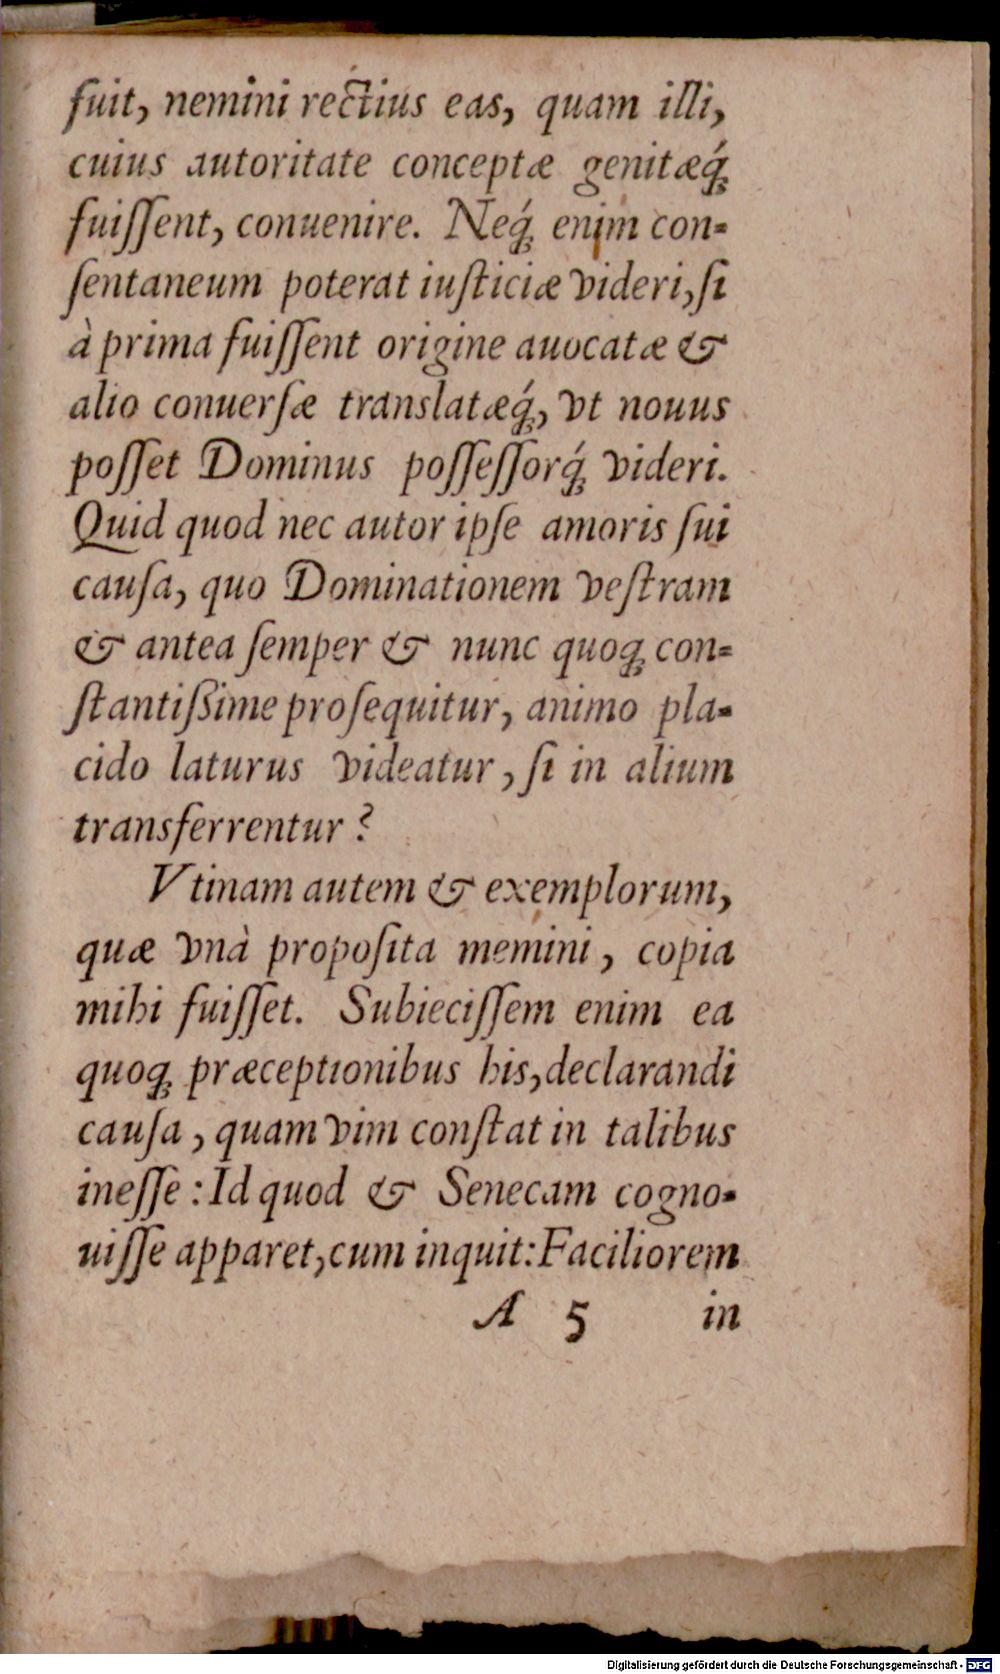 fuit, nemini rectius eas, quam illi,
cuius autoritate conceptæ genitæq́;
fuiſſent, conuenire. Neq́; enim con-
ſentaneum poterat iuſticiæ videri, ſi
à prima fuiſſent origine auocatæ &
alio conuerſæ translatæq́;, vt nouus
poſſet Dominus poſſeſſorq́; videri.
Quid quod nec autor ipſe amoris ſui
cauſa, quo Dominationem veſtram
& antea ſemper & nunc quoq; con-
ſtantiſsime proſequitur, animo pla-
cido laturus videatur, ſi in alium
transferrentur?
Vtinam autem & exemplorum,
quæ vnà propoſita memini, copia
mihi fuiſſet. Subieciſſem enim ea
quoq; præceptionibus his, declarandi
cauſa, quam vim conſtat in talibus
ineſſe: Id quod & Senecam cogno-
uiſſe apparet, cum inquit: Faciliorem
A 5 in
Digitalisierung gefördert durch die Deutsche Forschungsgemeinschaft - DFG